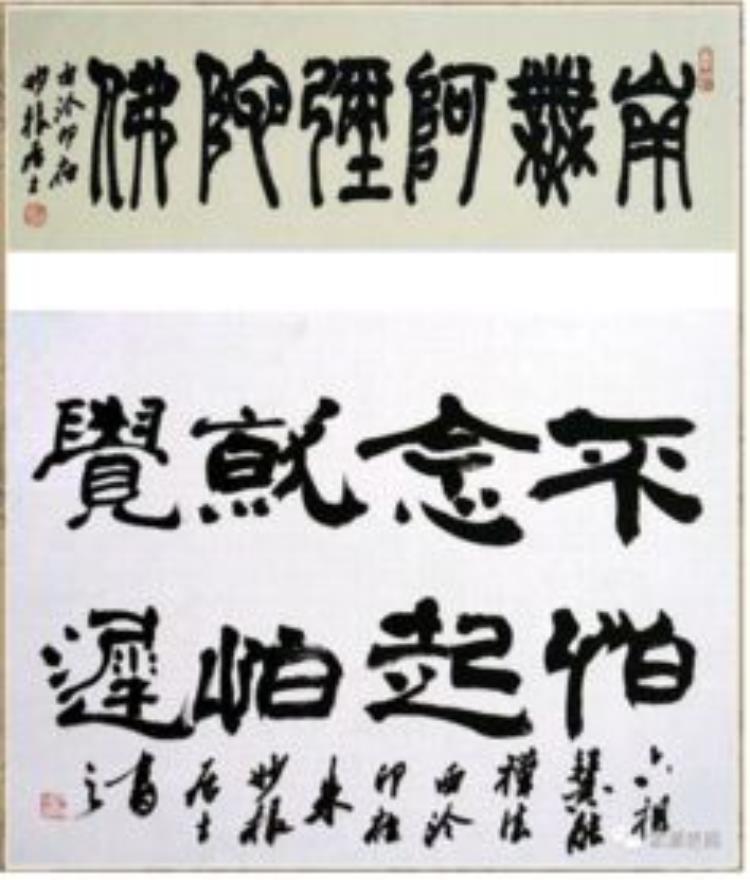 南無阿彌陀佛
西泠印社
妙根居士
不怕
念起
就怕
覺遲
六祖
慧能
禪法
西泠
印社
朱
妙根
居士
書
之